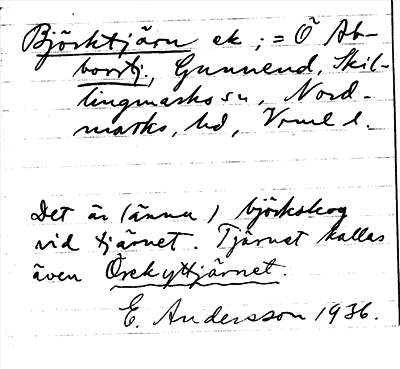 Björktjärn ek ; = Ö Ab-
borrtj., Gunnerud, Skil-
lingmarks sn, Nord-
marks hd, Vrml l.
Det är (ännu) björkskog
vid tjärnet. Tjärnet kallas
även Örekyttjärnet.
E. Andersson 1936.